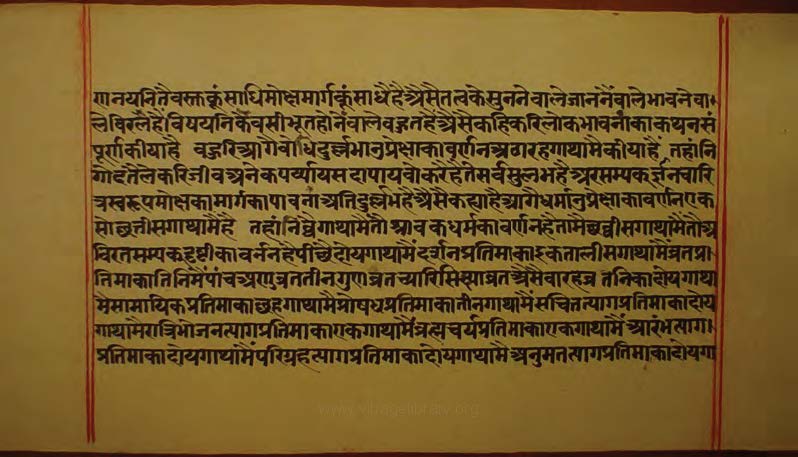 णनयनितैवस्तुकूंसाधिमोक्षमार्गकूंसाधैहैअैसैतत्वकेसुननेवालेजाननेंवालेभावनेवा।
लेविरलेहैंविषयनिकैवसीभूतहोनेंवालेबहुतहैअैसैकहिकरिलोकभावनाकाकथनसं
पूर्णकीयाहै बहुरिआगेंबोधिदुर्ल्लभानुप्रेक्षाकावर्णनअठारहगाथामैंकीयाहैं तहांनि
गोदतैलेकरिजीवअनेकपर्य्यायसदापायवोकरैहैतेसर्वसुलभहैअरसम्यकज्ञानचारि
त्रस्वरूपमोक्षकामार्गकापावनाअतिदुर्ल्लभहैअैसैकह्याहैआगैधर्मानुप्रेक्षाकावर्णनएक
सोछत्तीसगाथामैहै तहांनिवैगाथामैतौश्रावकधर्मकावर्णनहैतामैछव्वीसगाथामैंतौअ
विरतसम्यकदृष्टीकावर्ननहैपीछैदोयगाथामैंदर्शनप्रतिमाकाइकतालीसगाथामैंव्रतप्र
तिमाकातिनिमैंपांचअणुव्रततीनगुणव्रतच्यारिसिख्याव्रतअैसैबारहव्र तनिकादोयगाथा
मैसामायिकप्रतिमाकाछहगाथामैप्रोषधप्रतिमाकातीनगाथामैंसचितत्यागप्रतिमाकादोय
गाथामैरात्रिभोजनत्यागप्रतिमाकाएकगाथामैंब्रह्मचर्यप्रतिमाकाएकगाथामैं आरंभत्याग।
प्रतिमाकादोयगाथामैंपरिग्रहत्यागप्रतिमाकादोयगाथामैअनुमतत्यागप्रतिमाकादोयगा
www.vitragelibrary.org